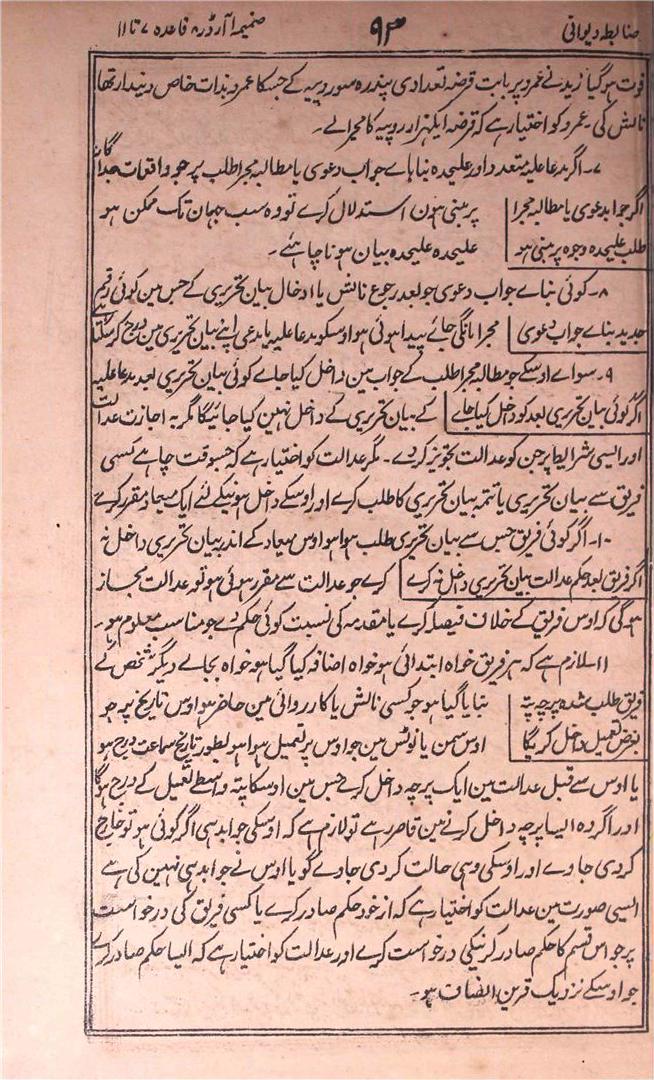 ضابطہ دیوانی
۹۳
ضمیمہ ۱ آرڈر ۸ قاعدہ ۷ تا ۱۱
فوت ہوگیا زید نے عمرو پر بابت قرضہ تعدادی پندرہ سو روپیہ کے جسکا عمرو بذات خاص دیندار تھا
نالش کی۔ عمرو کو اختیار ہے کہ قرضہ ایکہزار روپیہ کا مجرا لے۔
۷۔ اگر مدعاعلیہ متعدد اور علیحدہ بناہاے جواب دعوی یا مطالبہ مجرا طلب پر جو واقعات جداگانہ
اگر جوابدعوی یا مطالبہ مجرا
پر مبنی ہون استدلال کرے تو وہ سب جہان تک ممکن ہو
طلب علیحدہ وجوہ پر مبنی ہو
علیحدہ علیحدہ بیان ہونا چاہئے۔
۸۔ کوئی بناے جواب دعوی جو بعد رجوع نالش یا ادخال بیان تحریری کے جس مین کوئی رقم
جدید بناے جواب دعوی
مجرا مانگی جائے پیدا ہوئی ہو اوسکو مدعاعلیہ یا مدعی اپنے بیان تحریری مین درج کرسکتا ہے
۹۔ سواے اوسکے جو مطالبہ مجرا طلب کے جواب مین داخل کیا جاے کوئی بیان تحریری بعد مدعاعلیہ
اگر کوئی بیان تحریری بعد کو داخل کیا جاے
کے بیان تحریری کے داخل نہین کیا جائیگا مگر بہ اجازت عدالت
اور ایسی شرایط پر جن کو عدالت تجویز کردے۔ مگر عدالت کو اختیار ہے کہ جسوقت چاہے کسی
فریق سے بیان تحریری یا تتمہ بیان تحریری کا طلب کرے اور اوسکے داخل ہونیکے لئے ایک میعاد مقرر کرے
۱۰۔ اگر کوئی فریق جس سے بیان تحریری طلب ہوا ہو اوس میعاد کے اندر بیان تحریری داخل نہ
اگر فریق بعد حکم عدالت بیان تحریری داخل نہ کرے
کرے جو عدالت سے مقرر ہوئی ہو تو عدالت مجاز
ہوگی کہ اوس فریق کے خلاف فیصلہ کرے یا مقدمہ کی نسبت کوئی حکم دے جو مناسب معلوم ہو۔
۱۱۔ لازم ہے کہ ہر فریق خواہ ابتدائی ہو خواہ اضافہ کیا گیا ہو خواہ بجاے دیگر شخص کے
فریق طلب شدہ پرچہ پتہ
بنایا گیا ہو جو کسی نالش یا کارروائی مین حاضر ہو اوس تاریخ پر جو
بغرض تعمیل داخل کریگا
اوس سمن یا نوٹس مین جو اوس پر تعمیل ہوا ہو بطور تاریخ سماعت درج ہو
یا اوس سے قبل عدالت مین ایک پرچہ داخل کرے جس مین اوسکا پتہ واسطے تعمیل کے درج ہوگا
اور اگر وہ ایسا پرچہ داخل کرنے مین قاصر رہے تو لازم ہے کہ اوسکی جوابدہی اگر کوئی ہو تو خارج
کردی جاوے اور اوسکی وہی حالت کردی جاوے گویا اوس نے جوابدہی نہین کی ہے
ایسی صورت مین عدالت کو اختیار ہے کہ از خود حکم صادر کرے یا کسی فریق کی درخواست
پر جو اس قسم کا حکم صادر کرنیکی درخواست کرے اور عدالت کو اختیار ہے کہ ایسا حکم صادر کرے
جو اوسکے نزدیک قرین انصاف ہو۔